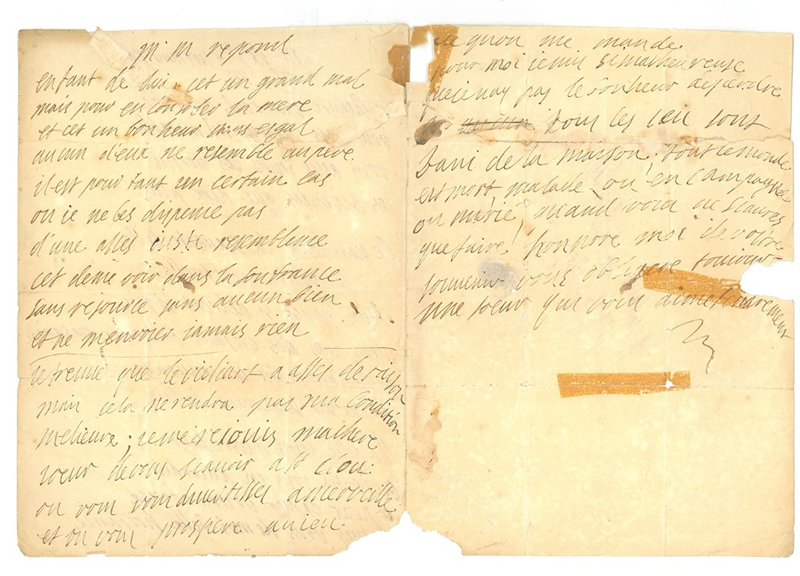 enfant de lui. cet un grand mal
mais pour en consoler la mere
et cet un bonheur sans esgal
aucun d'eux ne resemble au pere
il est pour tant un certain cas
ou ie ne les dispence pas
d'une asses iuste resemblence
cet de me voir dans la soufrance
sans resource sans aucun bien
et ne m'envoier iamais rien
ie treuve que le vieliart a asses de raison
mais cela ne rendra pas ma condition
melieure; ie me reiouis ma chere
soeur de vous scavoir a st clou:
ou vous vous divertisses a merveille
et ou vous prospere au ieu
ce qu'on me mande
pour moi ie suis si malheureuse
que ie n'ay pas le bonheur de perdre
tous les ieu sont
bani de la maison; tout le monde
est mort malade ou en campagne
ou marié, quand vous ne scaures
que faire honnore moi de votre
souvenir vous obligere touiour
une soeur qui vous aime tandrement